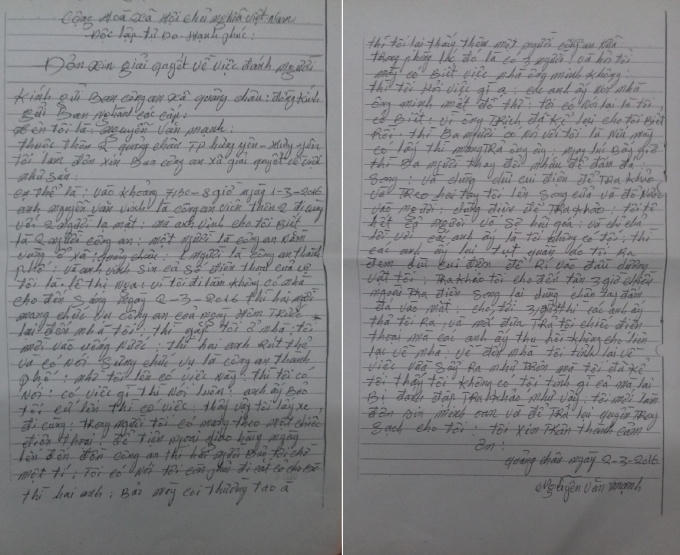 Cộng Hoà Xã Hội chủ nghĩa Việt Nam
Độc lập Tự Do Hạnh phúc:
Đơn xin giải quyết về việc đánh người
Kính gửi Ban công an xã quảng châu: đồng kính
gửi Ban nghành các cấp:
tên tôi là: Nguyễn Văn Mạnh:
thuộc thôn 2 quảng châu TP hưng yên - Hưng yên
tôi làm đơn xin Ban công an xã giải quyết về việc
như sau:
cụ thể là: vào khoảng 7h30 - 8 giờ ngày 1-3-2016
anh nguyễn văn vinh là công an viên thôn 2 đi cùng
với 2 người lạ mặt: mà anh vinh cho tôi Biết
là 2 người công an: một người là công an nằm
vùng ở xã: quảng châu: 1 người là công an thành
phố: và anh vinh xin cả số điện thoại của vợ
tôi là: lê thị Nụa: vì tôi đi làm không có nhà
cho đến sáng ngày 2-3-2016 thì hai người
mang chức vụ công an của ngày Hôm trước
lại đến nhà tôi: thì gặp tôi ở nhà: tôi
mời vào uống nước: thì hai anh Rút thẻ
và có nói xưng chức vụ là công an thành
phố: nhờ tôi lên có việc này: thì tôi có
nói: có việc gì thì nói luôn: anh ấy Bảo
tôi cứ lên thì có việc: thấy vậy tôi lấy xe
đi cùng: trong người tôi có mang theo một chiếc
điện thoại: để tiện ngoại giao hàng ngày
lên đến đồn công an thì hai người Bảo tôi chờ
một tí: tôi có nói tôi còn phải đi cắt cỏ cho Bò
thì hai anh: Bảo mày coi thường tao à
thì tôi lại thấy thêm một người nữa
trong phòng lúc đó là có 3 người: và hỏi tôi
mày có Biết việc nhà ông minh không:
thì tôi hỏi việc gì ạ: các anh ấy nói nhà
ông minh mất đồ thì: tôi có nói lại là tôi
có Biết: vì ông trích đã kể lại cho tôi Biết
Rồi: thì Ba người có nói với tôi là nếu mày
có lấy thì mang trả ông ấy: ngay lúc Bấy giờ
thì Ba người thay đổi nhau để đấm đá
song: và dùng dùi cui điện để tra khảo
và treo hai tay tôi lên song cửa và đổ nước
vào người: dùng điện để tra khảo: tôi tê
hết cả người và sợ hãi quá: và chỉ có
nói với các anh ấy là tôi không có tội: thì
các anh ấy lại tụt quần áo tôi ra
đem dùi cui điện để dí vào đầu dương
vật tôi: tra khảo tôi cho đến tận 3 giờ chiều
ngoài tra điện song lại dùng chân tay đấm
đá vào mặt: cho tới 3 giờ thì các anh ấy
thả tôi ra: và mới đưa trả tôi chiếc điện
thoại mà các anh ấy thu hồi không cho liên
lạc về nhà: về đến nhà tôi tính lại về
việc vừa sẩy ra như trên mà tôi đã kể
tôi thấy tôi không có tội tình gì cả mà lại
Bị đánh đập tra khảo như vậy: tôi mới làm
đơn xin minh oan và để trả lại quyền trong
sạch cho tôi: tôi xin trân thành cảm
ơn:
quảng châu ngày 2-3-2016
Nguyễn Văn Mạnh